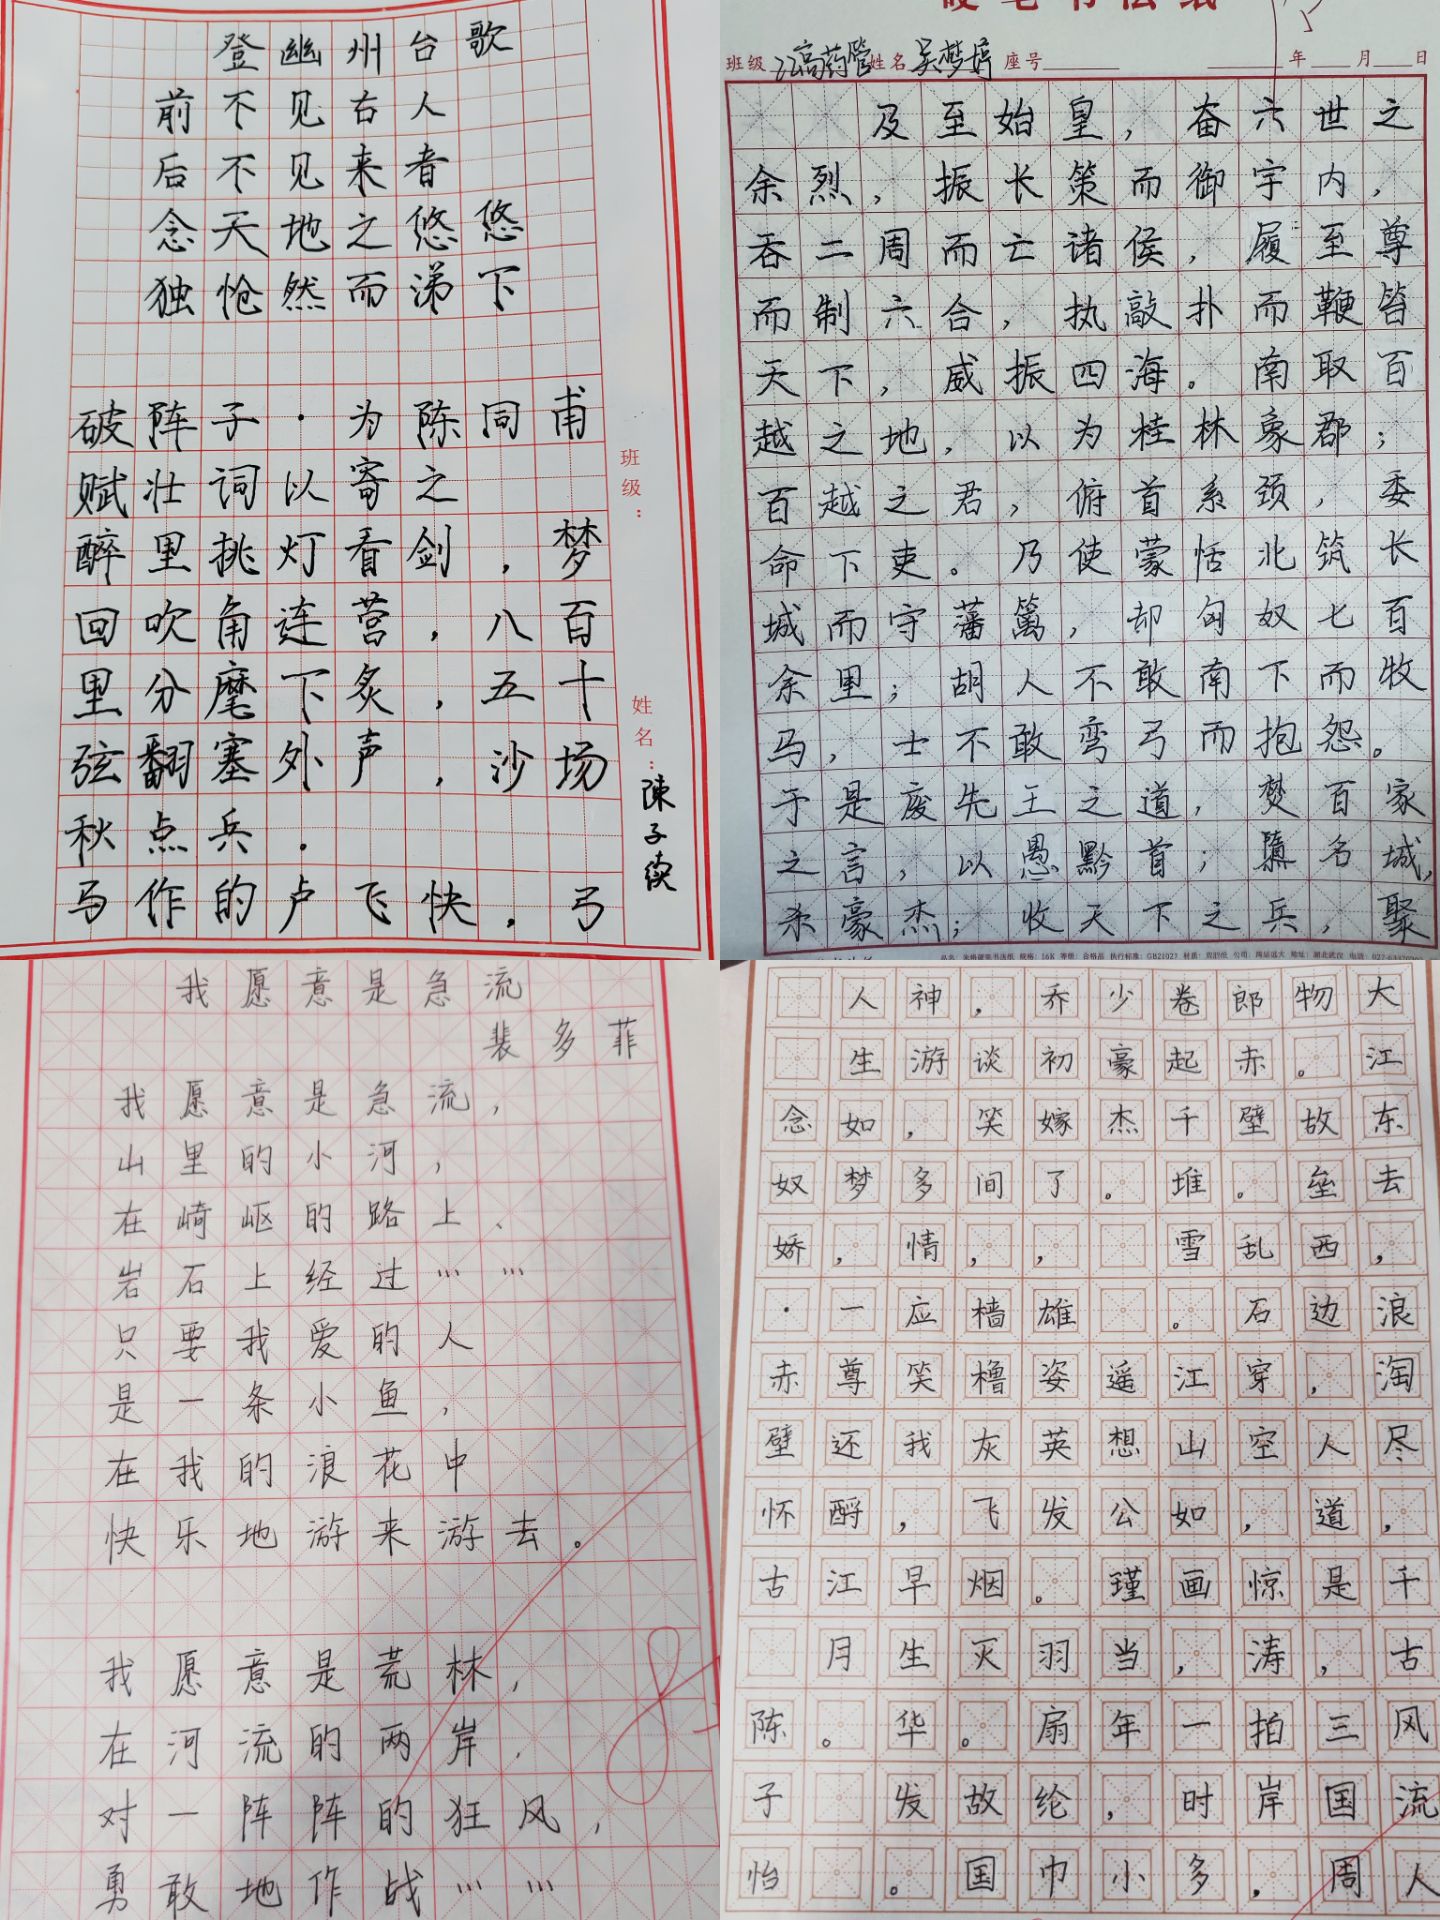 登幽州台歌
前不见古人
后不见来者
念天地之悠悠
独怆然而涕下
破阵子·为陈同甫
赋壮词以寄之
醉里挑灯看剑，梦
回吹角连营，八百
里分麾下炙，五十
弦翻塞外声，沙场
秋点兵.
马作的卢飞快，弓
班级：
姓名：陳子续
硬笔书法纸
班级 姓名 座号 年 月 日
及至始皇，奋六世之
余烈，振长策而御宇内，
吞二周而亡诸侯，履至尊
而制六合，执敲扑而鞭笞
天下，威振四海。南取百
越之地，以为桂林象郡；
百越之君，俯首系颈，委
命下吏。乃使蒙恬北筑长
城而守藩篱，却匈奴七百
余里；胡人不敢南下而牧
马，士不敢弯弓而抱怨。
于是废先王之道，焚百家
之言，以愚黔首；隳名城，
杀豪杰；收天下之兵，聚
我愿意是急流
裴多菲
我愿意是急流，
山里的小河，
在崎岖的路上、
岩石上经过……
只要我爱的人
是一条小鱼，
在我的浪花中
快乐地游来游去。
我愿意是荒林，
在河流的两岸，
对一阵阵的狂风，
勇敢地作战……
大江东去，浪淘尽，千古风流人
物。故垒西边，人道是，三国周
郎赤壁。乱石穿空，惊涛拍岸，
卷起千堆雪。江山如画，一时多
少豪杰。遥想公瑾当年，小
乔初嫁了，雄姿英发。羽扇纶巾
，谈笑间，樯橹灰飞烟灭。故国
神游，多情应笑我，早生华发。
人生如梦，一尊还酹江月。
念奴娇·赤壁怀古 陈子怡